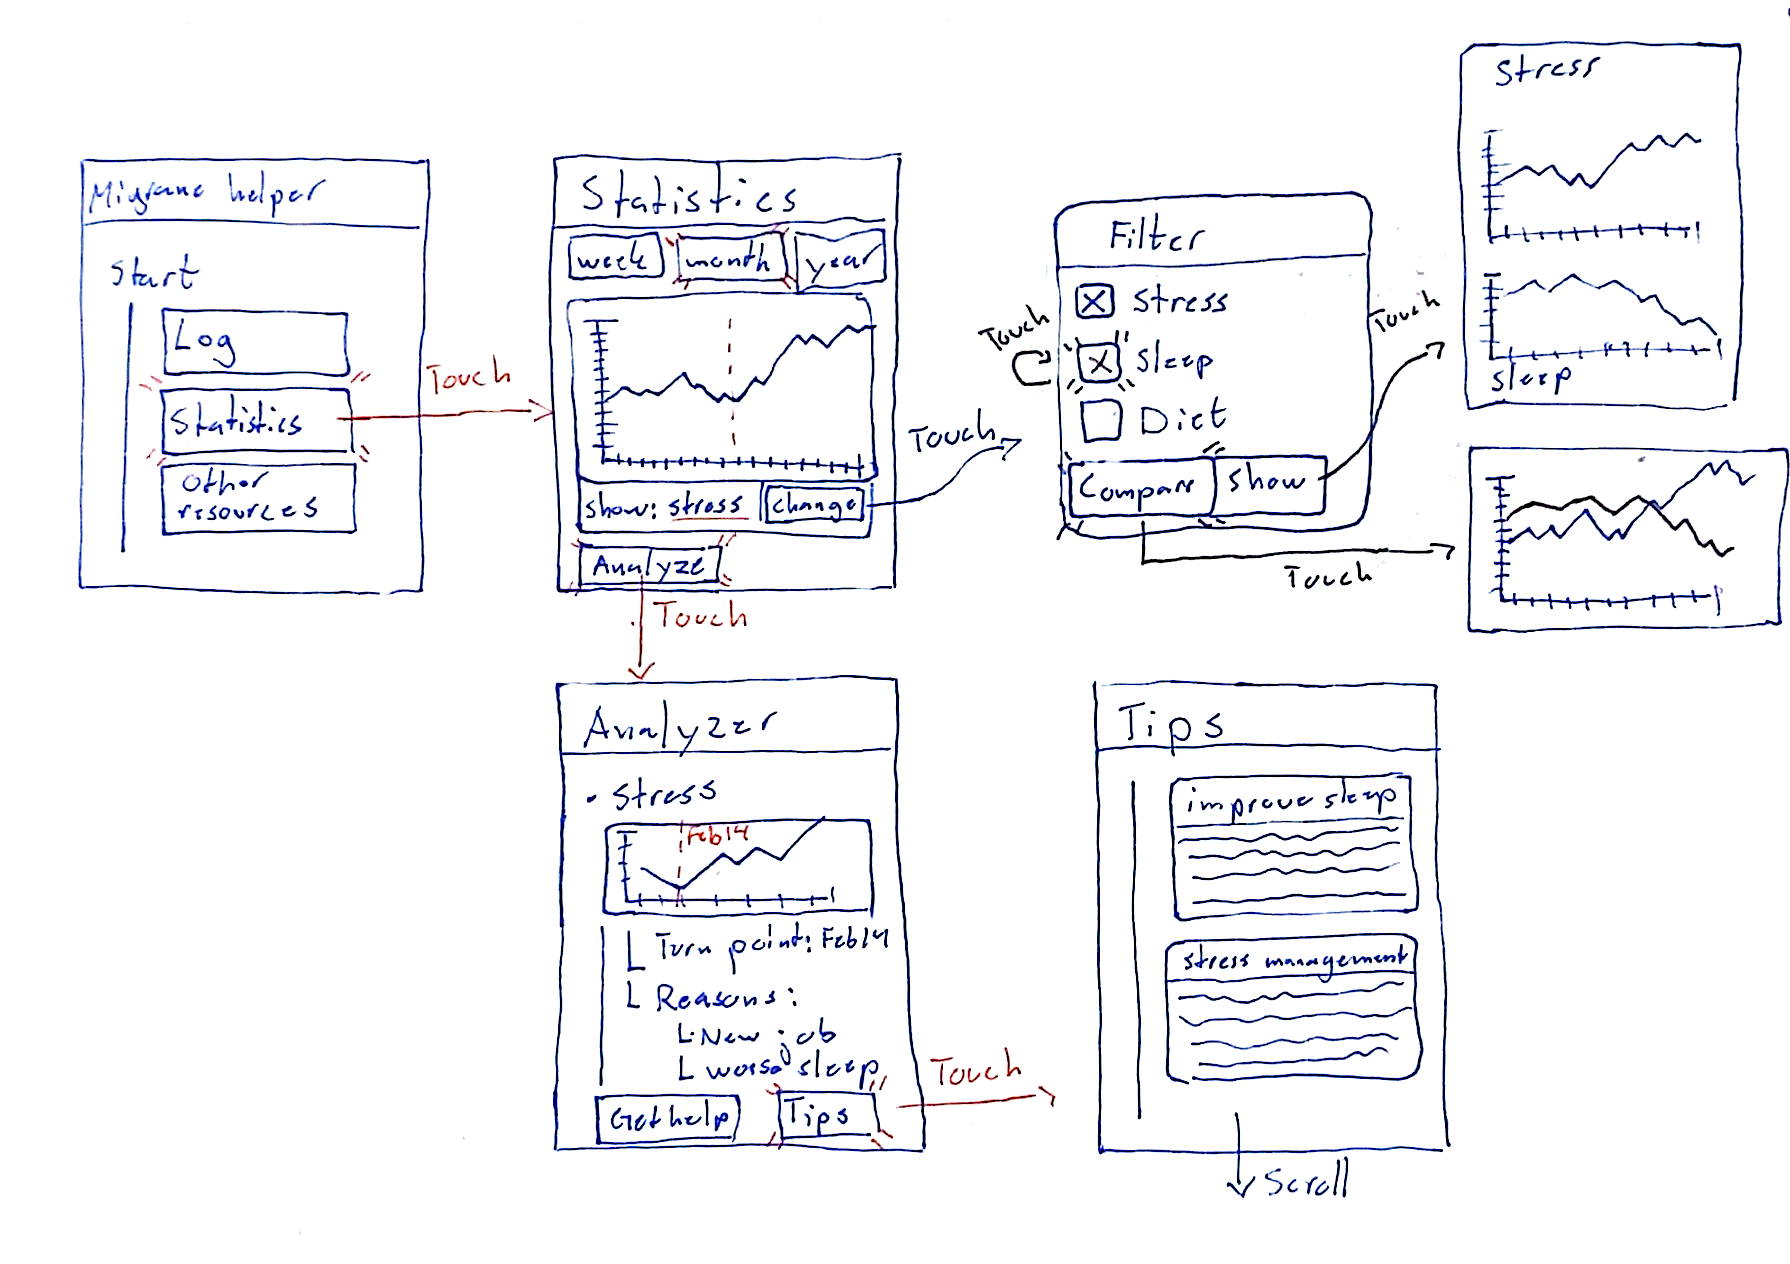 Migrane helper
Start
Log
Statistics
Other
resources
Touch
Statistics
week
month
year
show: stress
change
Analyze
Touch
Touch
Filter
Stress
Sleep
Diet
Compare
Show
Touch
Touch
Touch
Stress
Sleep
Analyzer
• Stress
Feb14
Turn point: Feb14
Reasons:
New job
worse sleep
Get help
Tips
Touch
Tips
improve sleep
stress management
Scroll